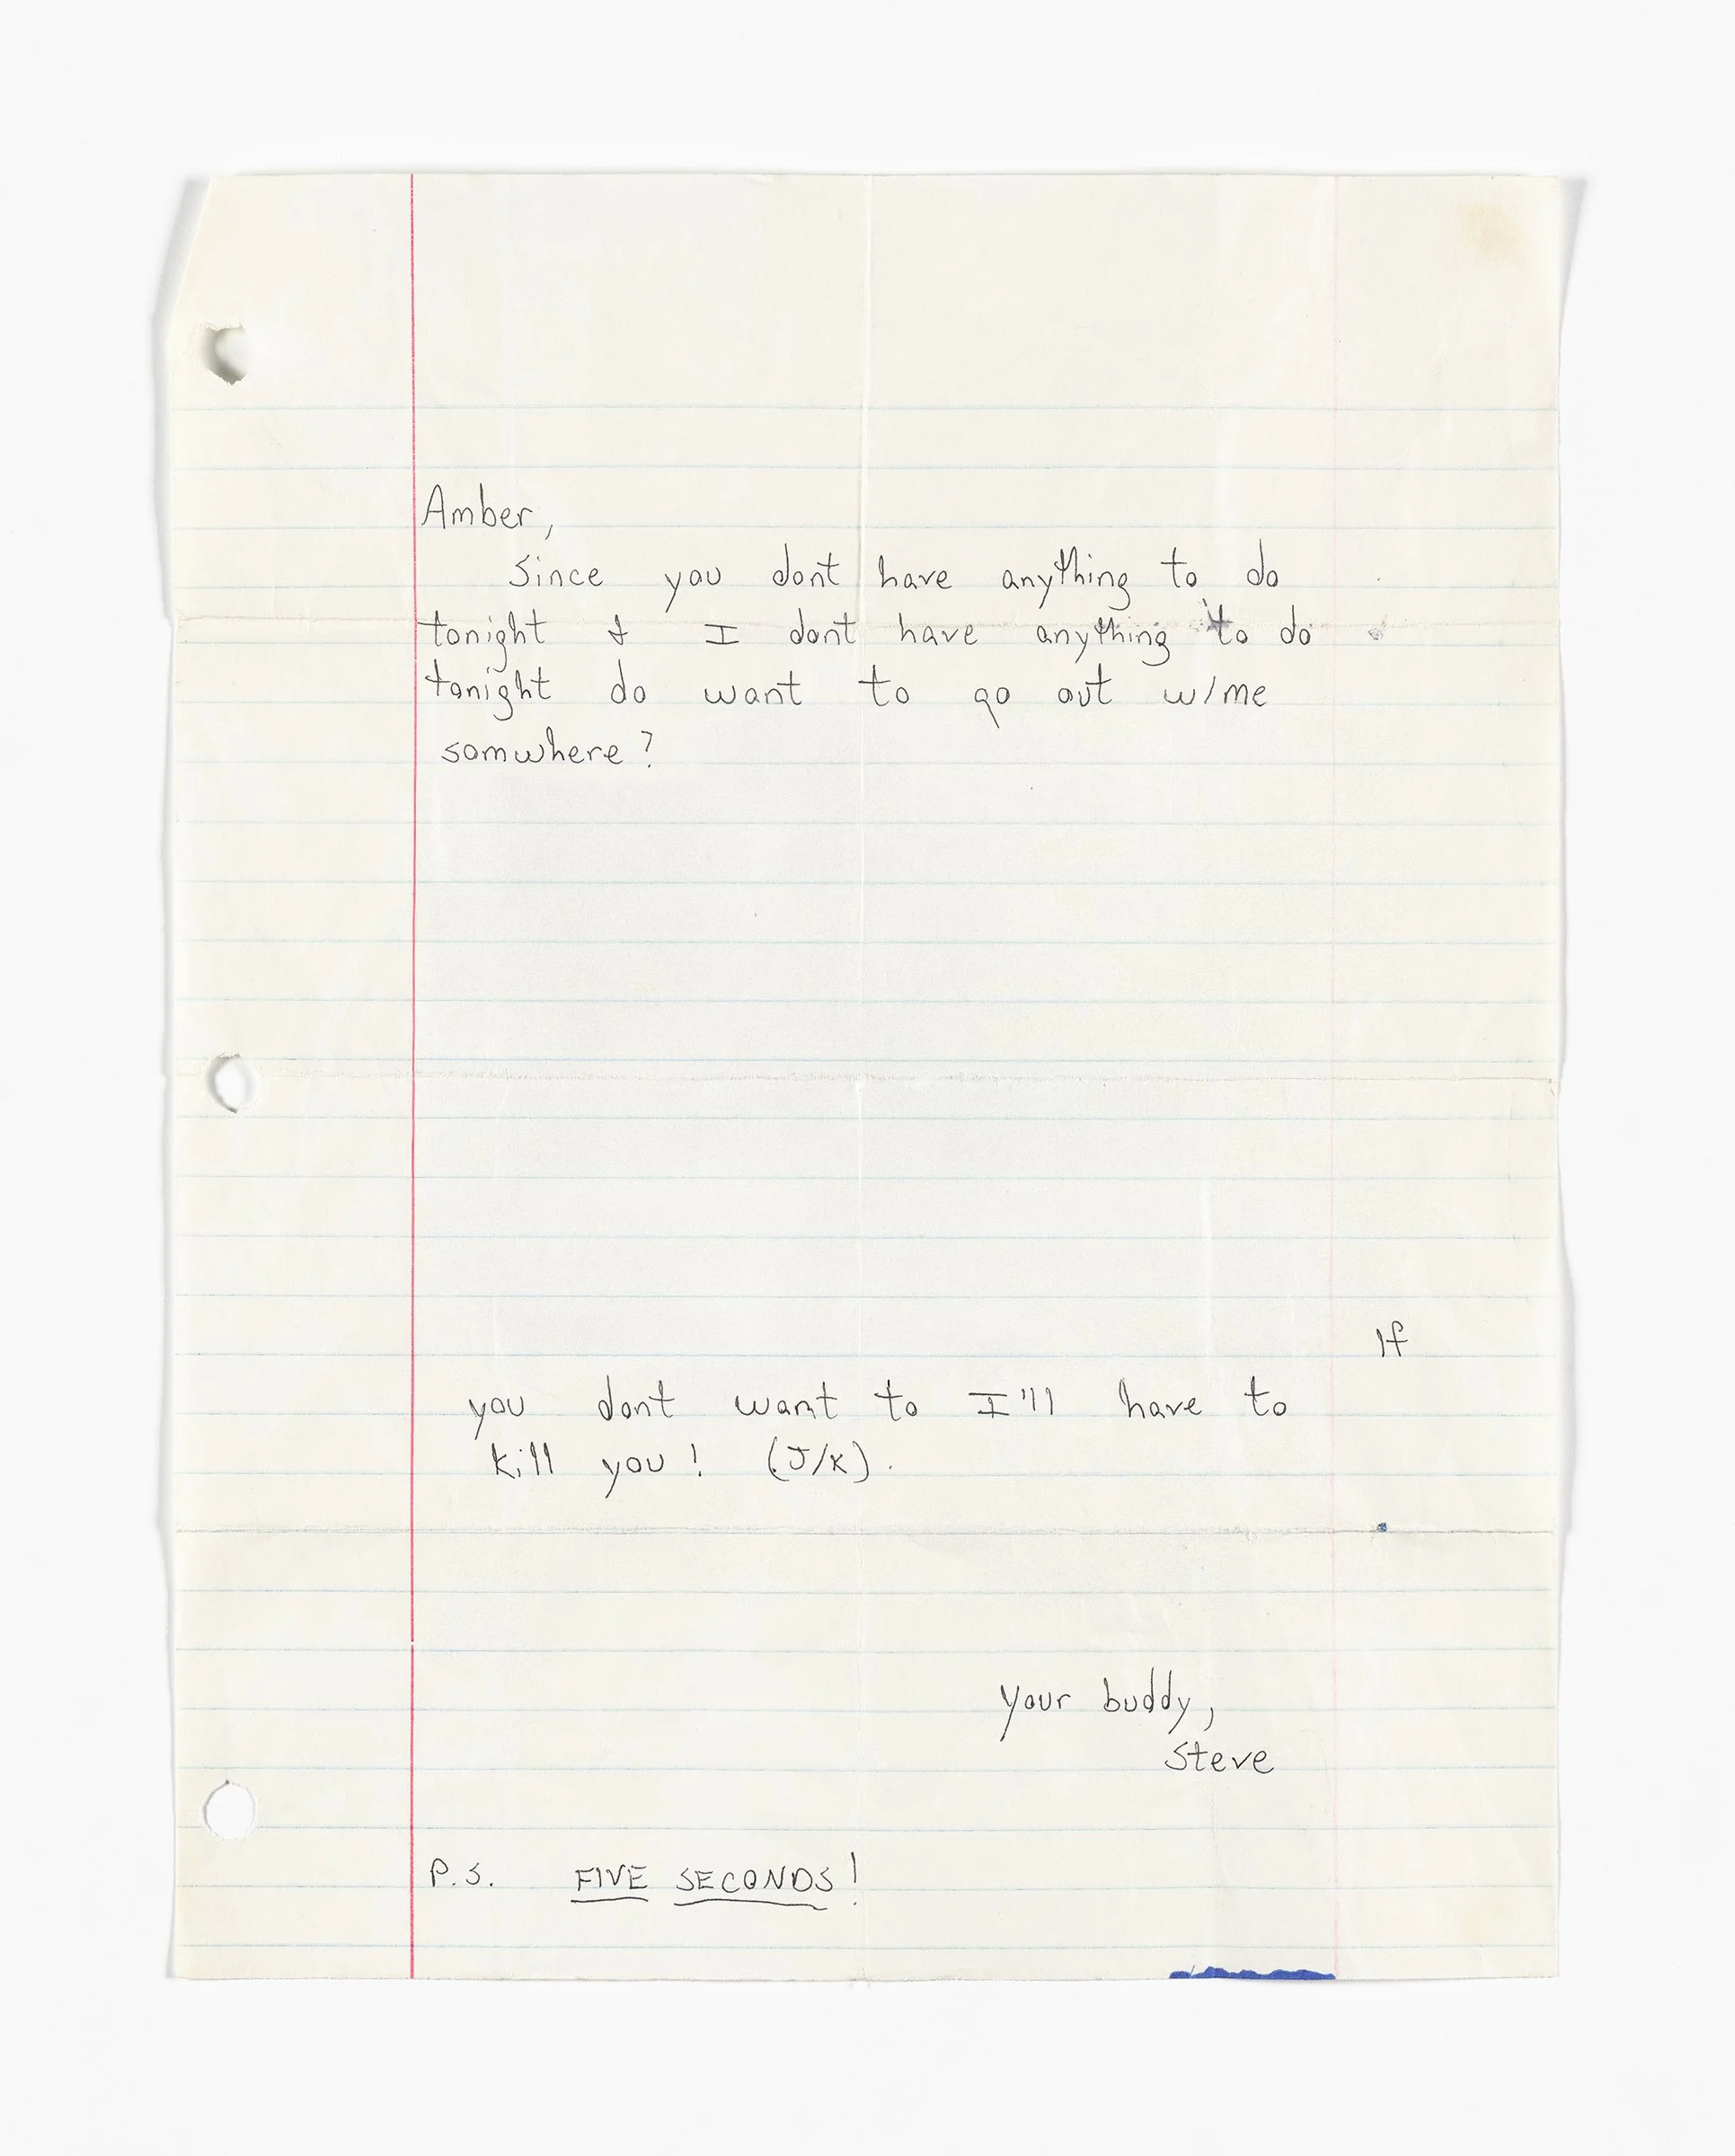 Amber,
Since you dont have anything to do
tonight & I dont have anything to do
tonight do want to go out w/me
somwhere?
If
you dont want to I'll have to
kill you! (J/K).
Your buddy,
Steve
P.S. FIVE SECONDS!